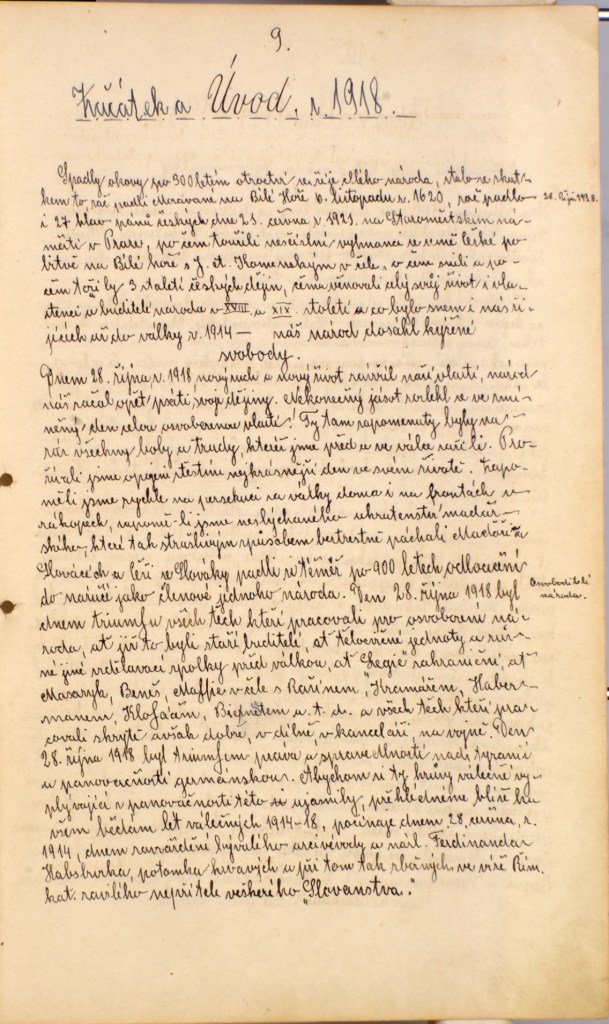 9.
Začátek a Úvod, r. 1918.
Spadly okovy po 300letém otroctví se šíje mého národa, stalo se skut-
kem to, zač padli Moravané na Bílé Hoře 6. listopadu r. 1620, zač padlo
28. Říj. 1918.
i 27 hlav pánů českých dne 21. června r. 1921. na Staroměstském ná-
městí v Praze, po čem toužili nesčíslní vyhnanci ze země České po
bitvě na Bílé hoře s J. A. Komenským v čele, o čem snili a po-
čem toužily 3 staletí českých dějin, čemu věnovali celý svůj život i vla-
stenci a buditelé národa v XVIII. a XIX. století a co bylo snem i nás ži-
jících až do války r. 1914 — náš národ dosáhl kýžené
svobody.
Dnem 28. října r. 1918 nový ruch a nový život zavířil naší vlastí, národ
náš začal opět psáti svoje dějiny. Nekonečný jásot rozlehl se ve zmí-
něný den celou osvobozenou vlastí! Ty tam zapomenuty byly na-
ráz všechny boly a trudy, kteréž jsme před a ve válce zažili. Pro-
žívali jsme opojeni štěstím nejkrásnější den ve svém životě. Zapo-
měli jsme rychle na persekuci za války doma i na frontách v
zákopech, zapoměli jsme neslýchaného ukrutenství maďar-
ského, které tak strašlivým způsobem beztrestně páchali Maďaři na
Slovácích a Češi se Slováky padli si téměř po 900 letech odloučení
Osvoboditelé
do náručí jako členové jednoho národa. Den 28. října 1918 byl
národa.
dnem triumfu všech těch kteří pracovali pro osvobození ná-
roda, ať již to byli staří buditelé, ať tělocvičné jednoty a růz-
né jiné vzdělavací spolky před válkou, ať "Legie" zahraniční, ať
Masaryk, Beneš, Maffie v čele s Rašínem, Kramářem, Haber-
manem, Klofáčem, a. t. d. a všech těch kteří pra-
covali skrytě avšak dobře, v dílně, v kanceláři, na vojně. Den
28. října 1918 byl triumfem práva a spravedlnosti nad tyranií
a panovačností germánskou. Abychom si ty hrůzy válečné vy-
plývající z panovačnosti této ujasnily, přehlédněme blíže ku
všem běhům let válečných 1914-18, počínaje dnem 28. června, r.
1914, dnem zavraždění bývalého arcivévody a násl. Ferdinanda
Habsburka, potomka krvavých a při tom tak zbožných ve víře Řím.
kat. zavilého nepřítele veškerého "Slovanstva."